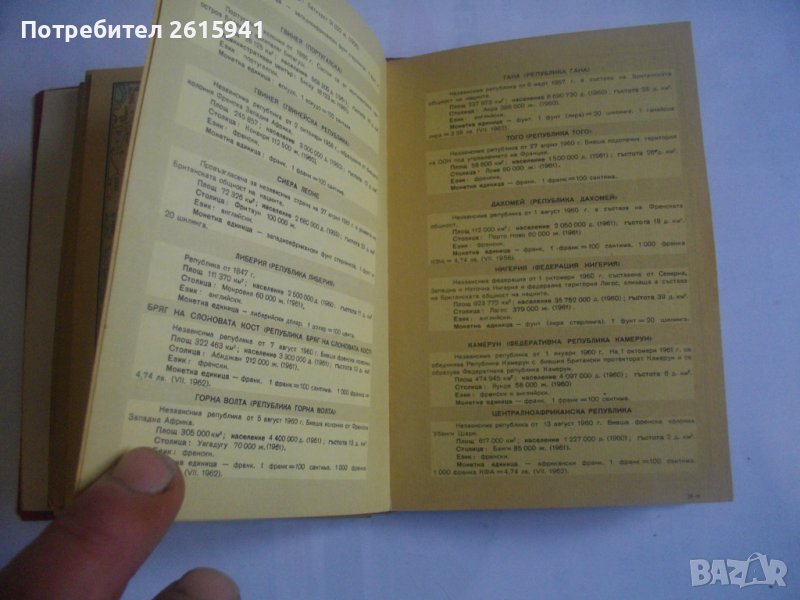 Потребител 2615941
ГВИНЕЯ (ПОРТУГАЛСКА)
ГВИНЕЯ (ГВИНЕЙСКА РЕПУБЛИКА)
Независима република от 2 октомври 1958 г.
колония Френска Западна Африка.
Площ 245 857; население 3 000 000 д. (1960)
Столица: Конакри 112 500 ж. (1960).
Език: френски.
Монетна единица: франк. 1 франк=100 сантима.
СИЕРА ЛЕОНЕ
Провъзгласена за независима страна на 27 април 1961 г.
Британската общност на нациите.
Площ 72 326 км²; население
Столица: Фритаун 100 000 ж.
Език: английски.
Монетна единица — западноафрикански фунт стерлинги. 1 фунт=
20 шилинга.
ЛИБЕРИЯ (РЕПУБЛИКА ЛИБЕРИЯ)
Република от 1847 г.
Площ 111 370 км²; население 2 500 000 д. (1960); гъстота 11 д. км².
Столица: Монровия 60 000 ж. (1961).
Език: английски.
Монетна единица — либерийски долар. 1 долар=100 цента.
БРЯГ НА СЛОНОВАТА КОСТ (РЕПУБЛИКА БРЯГ НА СЛОНОВАТА КОСТ)
Независима република от 7 август 1960 г. Бивша френска колония.
Площ 322 463 км²; население 3 300 000 д.
Столица: Абиджан 212 000 ж. (1960).
Език: френски.
Монетна единица — франк. 1 франк=100 сантима. 1 000 франка
4,74 лв. (VII. 1962).
ГОРНА ВОЛТА (РЕПУБЛИКА ГОРНА ВОЛТА)
Независима република от 5 август 1960 г. Бивша колония от Френска
Западна Африка.
Площ 305 000 км²; население 4 400 000 д. (1961); гъстота 13 д.
Столица: Уагадугу 70 000 ж. (1961).
Език: френски.
единица — франк. 1 франк=100 сантима. 1 000 франка
(VII. 1962).
ГАНА (РЕПУБЛИКА ГАНА)
Независима република от 6 март 1957 г. в състава на Британската
общност на нациите.
Площ 237 873 км²; население 6 690 730 д. (1960); гъстота 28 д. км².
Столица: Акра 388 000 ж. (1960).
Език: английски.
Монетна единица — фунт. 1 фунт (лира)=20 шилинга. 1 ганайска
ТОГО (РЕПУБЛИКА ТОГО)
Независима република от 27 април 1960 г. Бивша подопечна територия
на ООН под управлението на Франция.
Площ 56 600 км²; население 1 500 000 д. (1961); гъстота 26 д. км².
Столица: Ломе 80 000 ж. (1961).
Език: френски.
Монетна единица: франк. 1 франк=100 сантима.
ДАХОМЕЙ (РЕПУБЛИКА ДАХОМЕЙ)
Независима република от 1 август 1960 г. в състава на Френската
общност.
Площ 112 000 км²; население 2 000 000 д. (1961); гъстота 18 д. км².
Столица: Порто Ново 60 000 ж. (1961).
Език: френски.
Монетна единица — франк. 1 франк=100 сантима. 1 000 франка
КФА=4,74 лв.
НИГЕРИЯ (ФЕДЕРАЦИЯ НИГЕРИЯ)
Независима федерация от 1 октомври 1960 г. съставена от Северна,
Западна и Източна Нигерия и федерална територия Лагос, влизаща в състава
на Британската общност на нациите.
Площ 923 773 км²; население 35 752 000 д. (1960); гъстота 39 д. км².
Столица: Лагос 379 000 ж. (1961).
Език: английски.
Монетна единица — фунт (лира стерлинга). 1 фунт=20 шилинга.
КАМЕРУН (ФЕДЕРАТИВНА РЕПУБЛИКА КАМЕРУН)
Независима република от 1 януари 1960 г. На 1 октомври 1961 г. се
обединява Република Камерун с бившия британски протекторат Камерун и се
образува Федеративна република Камерун.
Площ 474 945 км²; население 4 097 000 д. (1960); гъстота 8 д. км².
Столица: Яунде 58 000 ж. (1960).
Език: френски.
Монетна единица — франк. 1 франк=100 сантима.
ЦЕНТРАЛНОАФРИКАНСКА РЕПУБЛИКА
Независима република от 13 август 1960 г. Бивша френска колония
Убанги Шари.
Площ 617 000 км²; население 1 227 000 д. (1960); гъстота 2 д. км².
Столица: Банги 85 000 ж. (1961).
Език: френски.
Монетна единица — африкански франк. 1 франк=100 сантима.
1 000 франка КФА=4,74 лв. (VII. 1962).
BAZAR